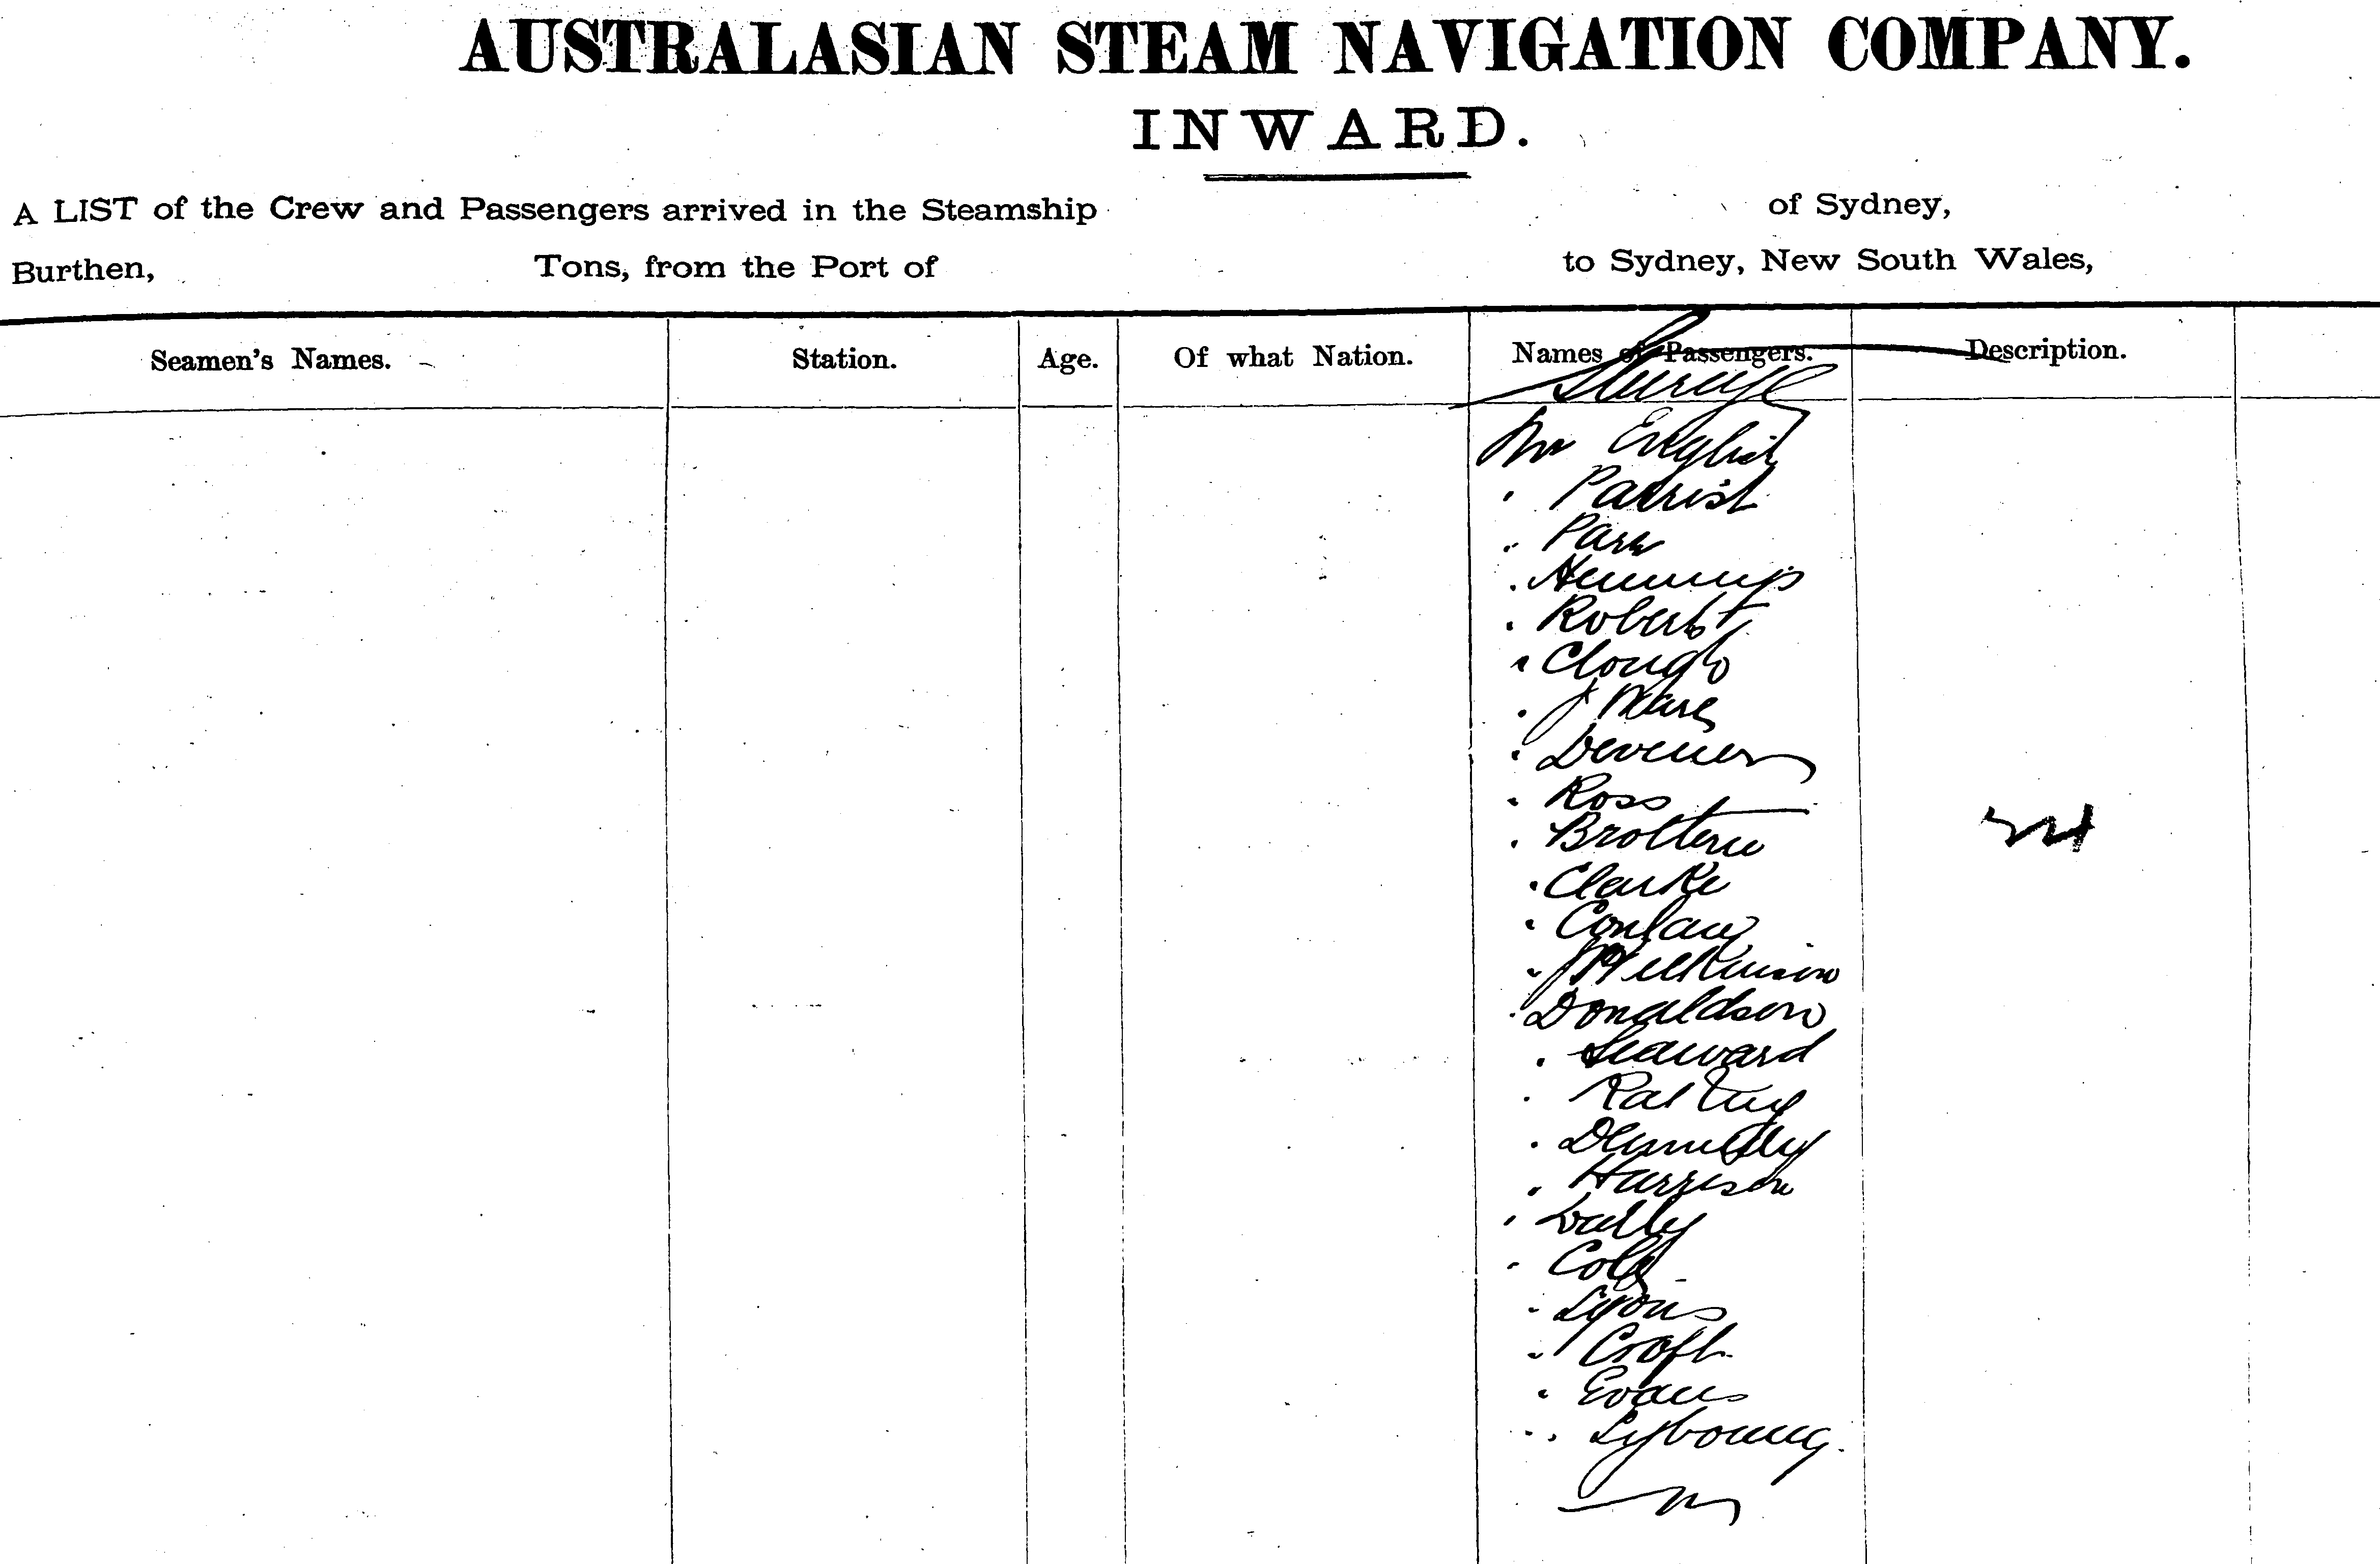 AUSTRALASIAN STEAM NAVIGATION COMPANY.
INWARD.
A LIST of the Crew and Passengers arrived in the Steamship of Sydney,
Burthen, Tons, from the Port of to Sydney, New South Wales,
Seamen's Names. Station. Age. Of what Nation. Names of Passengers. Description.
Steerage
Mr English
" Parrish
" Park
" Robert
" Clough
" J Ware
" Ross
" Clarke
" J Wilkinson
" Donaldson
" Seaward
" Harrison
" Cole
" Lyons
" Croft
" Evans